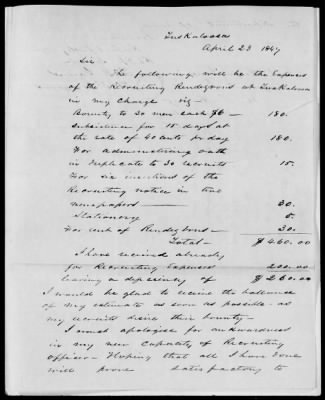 Tuskaloosa
April 23 1847
Sir
The following will be the Expenses
of the Recruiting Rendezvous at Tuskaloosa
in my Charge viz—
Bounty to 30 men each $6 — 180.
Subsistence for 15 days at
the rate of 40 cents per day 180.
For administering oath
in duplicate to 30 recruits 15.
For six insertions of the
Recruiting notice in two
newspapers — 30.
Stationery 5.
For rent of Rendezvous — 30.
Total — $460.00
I have received already
for Recruiting Expenses 200.00
leaving a deficiency of $260.00
I would be glad to receive the ballance
of my estimate as soon as possible - as
my recruits desire their bounty—
I must apologise for awkwardness
in my new Capacity of Recruiting
officer — Hoping that all I have done
will prove satisfactory to